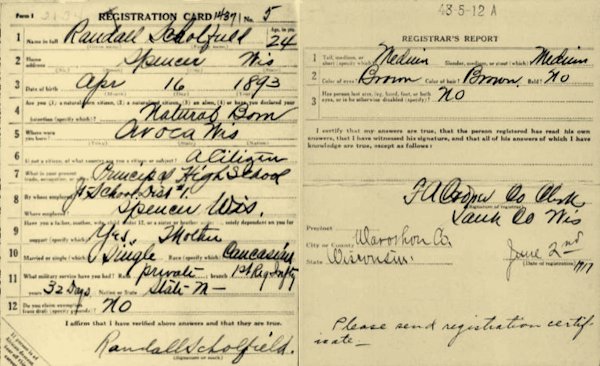 Form 1
REGISTRATION CARD 1437 No. 5
1 Name in full Randall Scholfield Age, in yrs. 24
2 Home address Spencer Wis
3 Date of birth Apr 16 1893
4 Are you (1) a natural-born citizen, (2) a naturalized citizen, (3) an alien, (4) or have you declared your
intention (specify which)? Natural Born
5 Where were you born? Avoca Wis
6 If not a citizen, of what country are you a citizen or subject? A Citizen
7 What is your present trade, occupation, or office? Principal High School
8 By whom employed? Jt School Dist #1.
Where employed? Spencer Wis.
9 Have you a father, mother, wife, child under 12, or a sister or brother under 12, solely dependent on you for
support (specify which)? Yes, Mother
10 Married or single (which)? Single Race (specify which)? Caucasian
11 What military service have you had? Rank private branch 1st Reg Inftry
years 32 Days Nation or State State M—
12 Do you claim exemption from draft (specify grounds)? No
I affirm that I have verified above answers and that they are true.
Randall Scholfield.
(Signature or mark)
43 5-12 A
REGISTRAR'S REPORT
1 Tall, medium, or short (specify which)? Medium Slender, medium, or stout (which)? Medium
2 Color of eyes? Brown Color of hair? Brown Bald? No
3 Has person lost arm, leg, hand, foot, or both eyes, or is he otherwise disabled (specify)? No
I certify that my answers are true, that the person registered has read his own
answers, that I have witnessed his signature, and that all of his answers of which I have
knowledge are true, except as follows:
Co Clerk
(Signature of registrar)
Sauk Co Wis
Precinct
City or County Marathon Co.
State Wisconsin.
June 2nd 1917
(Date of registration)
Please send registration certif
icate—